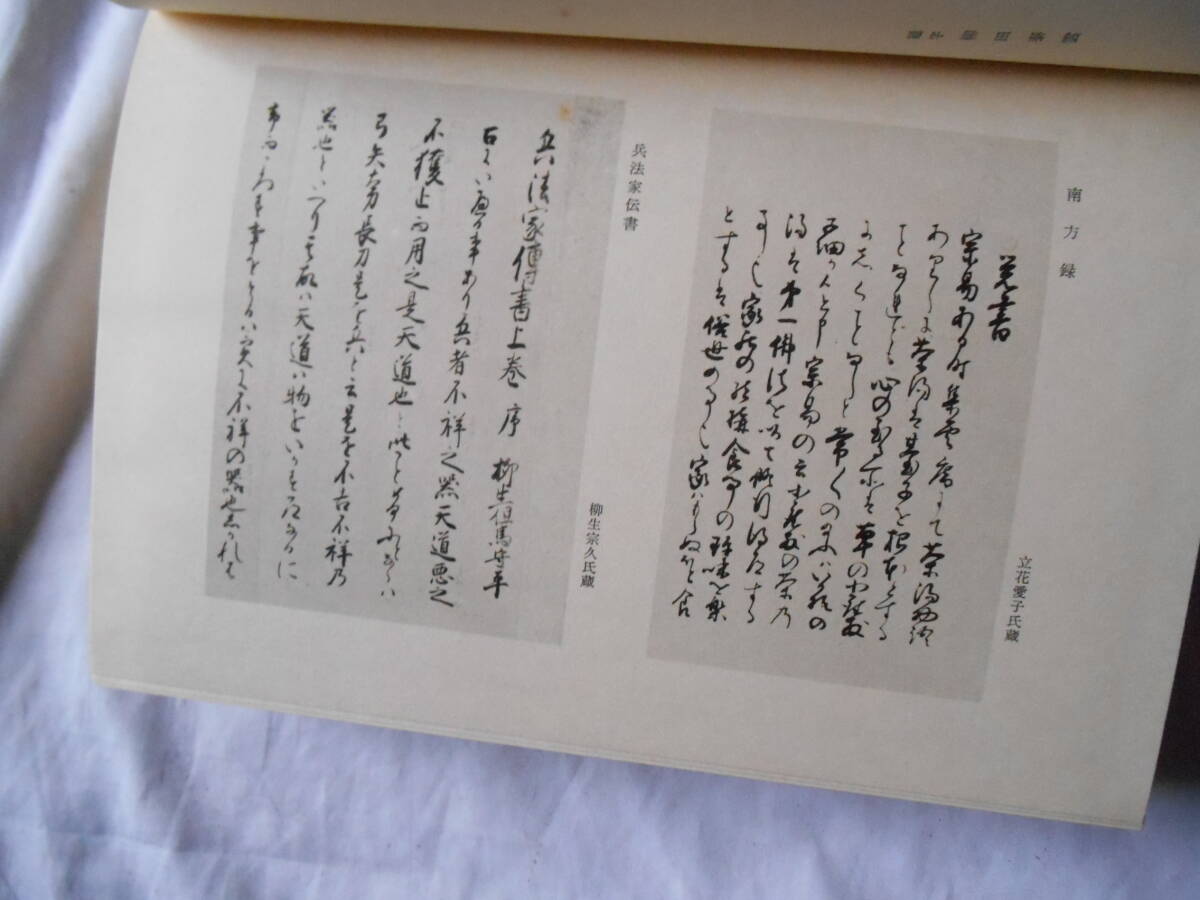 南方録
立花愛子氏蔵
覚書
宗易ある時集雲庵にて茶湯物語
ありしに茶湯は台子を根本とする
ことなれとも心の至る所は草の小座敷
にしくことなしと常〱の給ふハいか様の
子細か候と申宗易の云小座敷の茶乃
湯は第一佛法を以て修行得道する
事也家居の結構食事の珍味を楽
とするは俗世の事也家ハもらぬほと食
兵法家伝書
柳生宗久氏蔵
兵法家傳書上巻 序 柳生但馬守平
古にいへる事あり兵者不祥之器天道悪之
不獲止而用之是天道也と此こと如何となれハ
弓矢太刀長刀是を兵と云是を不吉不祥乃
器也といへり其故ハ天道ハ物をいかす道なるに
却而ころす事をとるハ実に不祥の器也しかれは